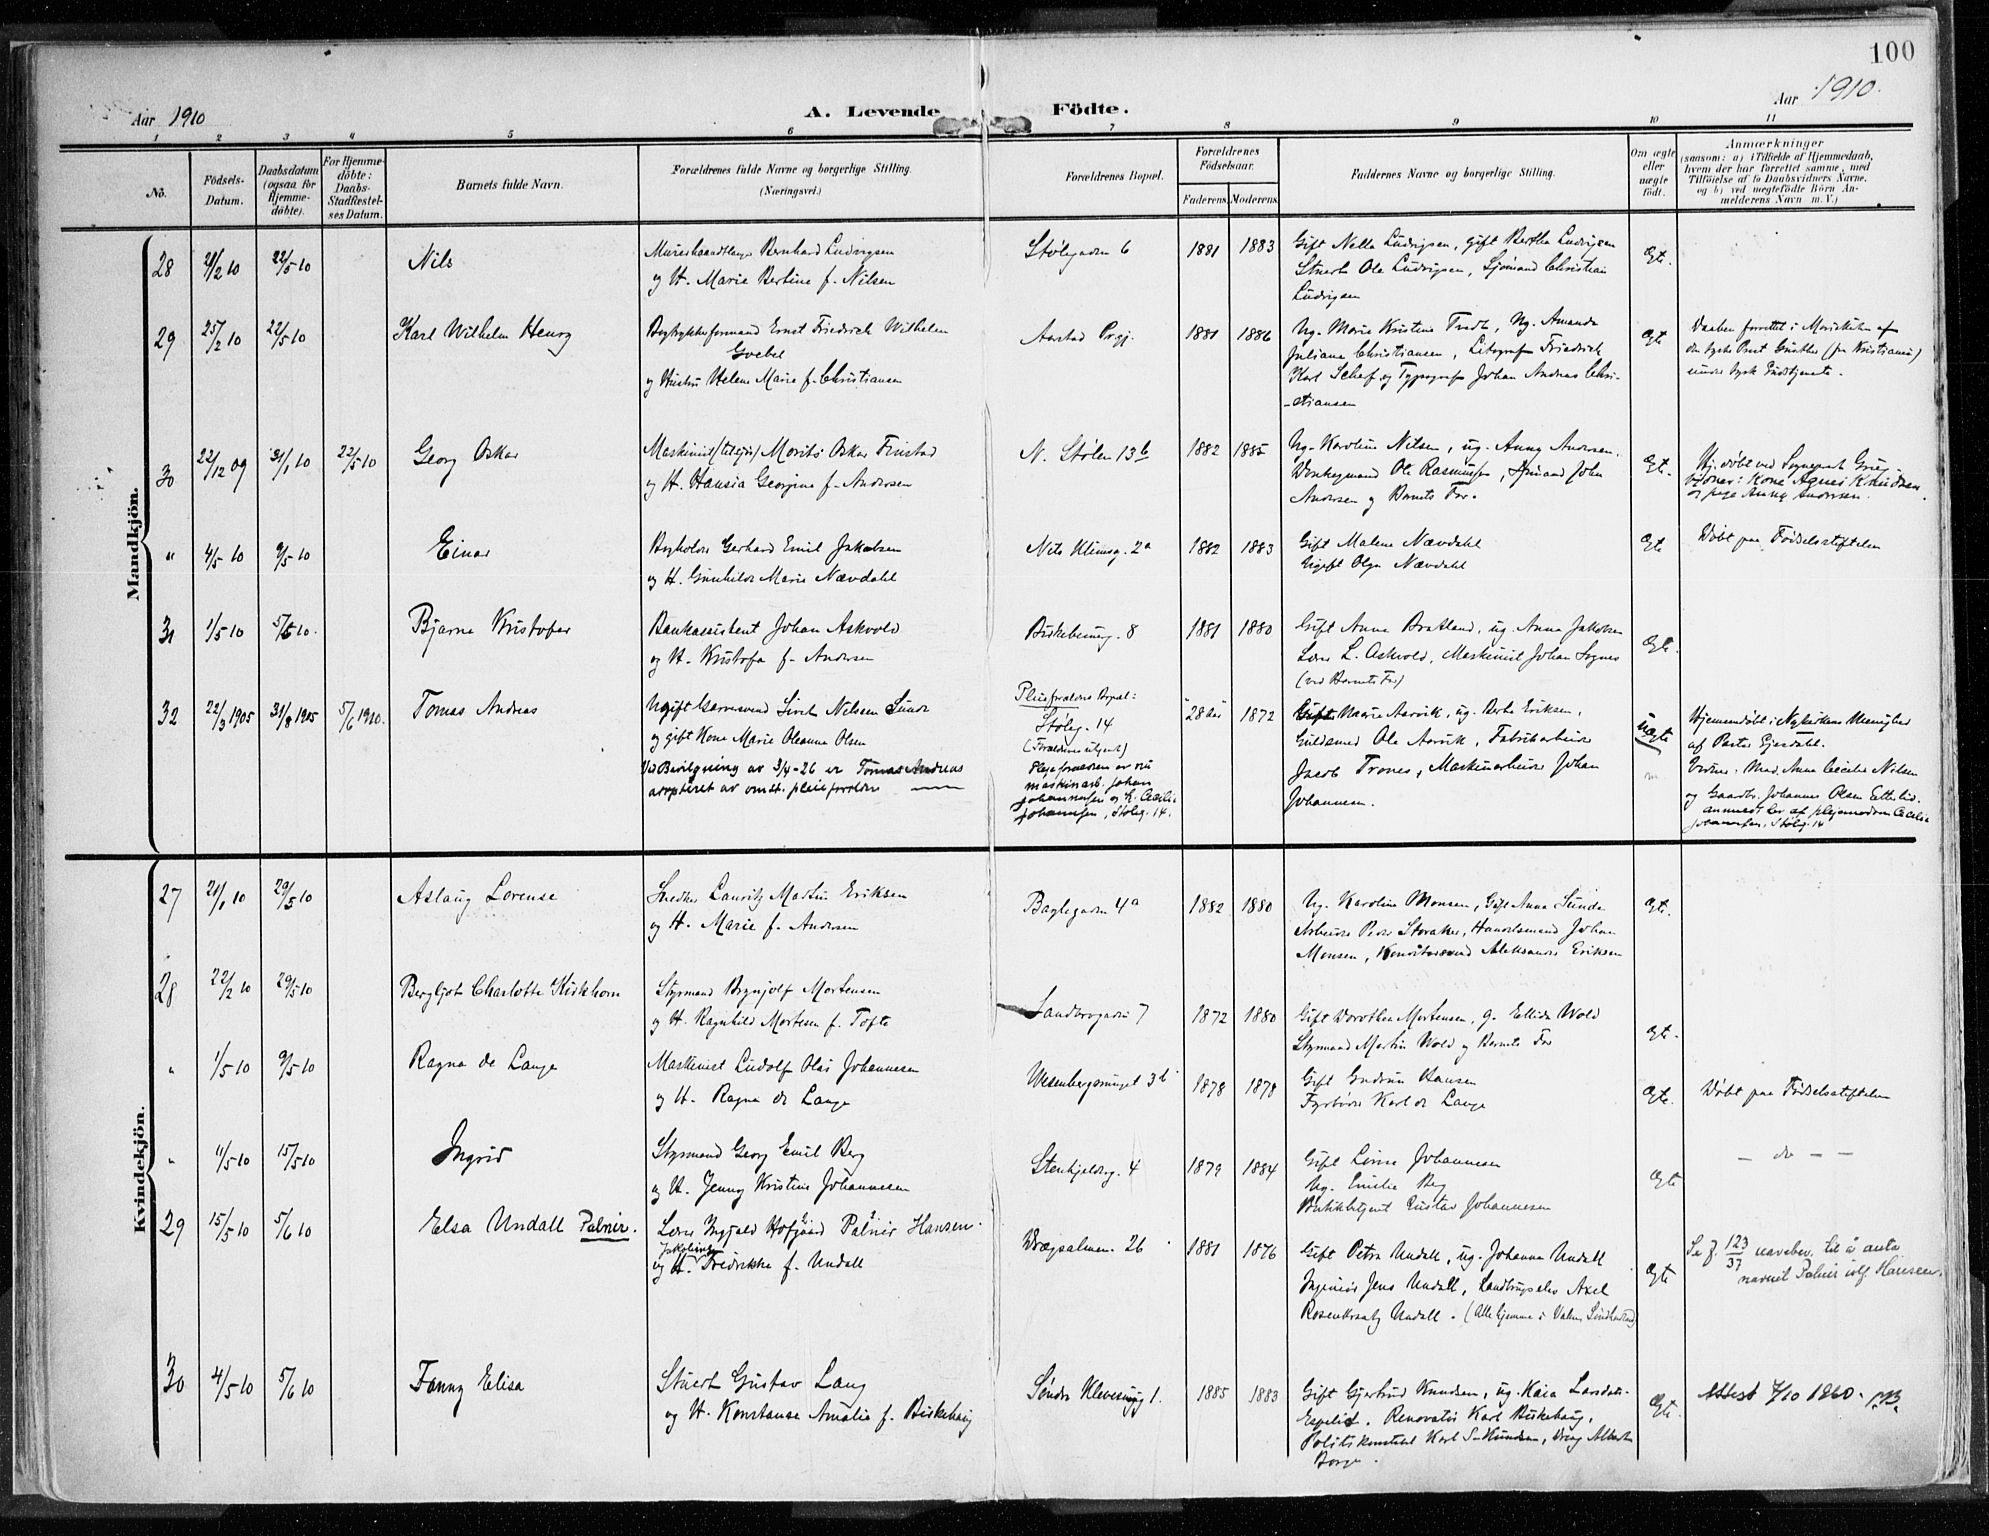 100
Aar 1910
A. Levende Födte.
Aar 1910.
1 2 3 4 5 6 7 8 9 10 11
No.
Födsels-
Datum.
Daabsdatum
(ogsaa for
Hjemme-
döbte).
For Hjemme-
döbte:
Daabs-
Stadfæstel-
ses Datum.
Barnets fulde Navn.
Forældrenes fulde Navne og borgerlige Stilling.
(Næringsvei.)
Forældrenes Bopæl.
Forældrenes
Födselsaar.
Faderens. Moderens.
Faddernes Navne og borgerlige Stilling.
Om ægte
eller
uægte
født.
Anmærkninger
(saasom: a) i Tilfælde af Hjemmedaab,
hvem der har forrettet samme, med
Tilföielse af to Daabsvidners Navne,
og b) ved uegtefödte Börn An-
melderens Navn m. V.)
Mandkjön.
28 21/2 10 22/5 10 Nils
Bernhard Ludvigsen
og H. Marie Bertine f. Nilsen
Stølegaden 6
1881 1883
Gift Nella Ludvigsen, gift Bertha Ludvigsen
Stuert Ole Ludvigsen, Sjømand Christian
Ludvigsen
Egte.
29 25/2 10 22/5 10 Karl Wilhelm Henry
Ernst Friedrich Wilhelm
Goebel
og Hustru Helene Marie f. Christiansen
Aarstad Prgj.
1881 1886
Ug. Marie Kristine Tvedt, Ug. Amanda
Juliane Christiansen, Litograf Friedrich
Karl Schaf og Typograf Johan Andreas Chri-
-stiansen
Egte
Daaben forrettet i Mariekirken af
den tyske Prest Günther (fra Kristiania)
under tysk Gudstjeneste.
30 22/12 09 31/1 10 22/5 10 Georg Oskar
Maskinist Morits Oskar Finstad
og H. Hansia Georgine f. Andersen
N. Stølen 13b
1882 1885
Ug. Karoline Nilsen, ug. Anny Andersen.
Ole Rasmussen, Sjømand John
Andersen og Barnets Far.
Egte.
Hj. døbt ved Sogneprest Grieg
Vidner: Kone Agnes Knudsen
og pige Anny Andersen.
" 4/5 10 9/5 10 Einar
Bogholder Gerhard Emil Jakobsen
og H. Gunhilde Marie Nævdahl
Nils Klimsg. 2a
1882 1883
Gift Malene Nævdahl
Ugift Olga Nævdahl
Egte
Døbt paa Fødselsstiftelsen
31 1/5 10 5/6 10. Bjarne Kristofer
Bankassistent Johan Askvold
og H. Kristofa f. Andersen
Birkebeinerg. 8
1881 1880
Gift Anna Bratland, ug. Anna Jakobsen
Lærer L. Askvold, Maskinist Johan Sognes
(ved Barnets Far)
Egte.
32 22/3 1905 31/8 1905 5/6 1910. Tomas Andreas
Ugift Garversvend Sivert Nilsen Sunde
og gift Kone Marie Oleanna Olsen
Ved Bevilgning av 3/4-26 er Tomas Andreas
adopteret av omst. pleieforeldre
Pleieforældrenes Bopæl:
Støleg. 14
(Forældrene utgaat)
Plejeforældrene er nu
maskinarb. Johan
Johannesen og H. Cecilie
Johannesen, Støleg. 14.
28 aar 1872
Gift Marie Aarvik, ug. Berta Eriksen,
Guldsmed Ole Aarvik, Fabrikarbeider
Jacob Trones, Maskinarbeider Johan
Johannesen.
uegte
Hjemmedøbt i Nykirkens Menighed
af Pastor Gjesdahl.
Vidner: Mad. Anne Cecilie Nilsen
og Gaardbr. Johannes Olsen Etterlid.
anmeldt ler af plejemoderen Cecilie
Johannesen, Støleg. 14
Kvindekjön.
27 21/1 10 29/5 10 Aslaug Lorense
Snedker Lauritz Martin Eriksen
og H. Marie f. Andersen
Baglegaden 4a
1882 1880
Ug. Karoline Monsen, Gift Anna Sunde
Arbeider Peder Storaker, Handelsmand Johan
Monsen, Konditorsvend Aleksander Eriksen
Egte.
28 22/2 10 29/5 10 Bergljot Charlotte Kirkhorn
Styrmand Brynjolf Mortensen
og H. Ragnhild Mortesen f. Tofte
Sandbrogaden 7
1872 1880
Gift Dorothea Mortensen, g. Ellida Wold
Styrmand Martin Wold og Barnets Far
Egte.
" 1/5 10 9/5 10 Ragna de Lange
Maskinist Ludolf Olai Johannesen
og H. Ragna de Lange
Wesenbergsmuget 3b
1878 1878
Gift Gudrun Hansen
Fyrbøder Karl de Lange
Egte.
Døbt paa Fødselsstiftelsen
" 11/5 10 15/5 10 Ingrid
Styrmand Georg Emil Berg
og H. Jenny Kristine Johannesen
Stenkjelderg. 4
1879 1884
Gift Lovise Johannesen
Ug. Emilie Berg
Butikbetjent Gustav Johannesen
Egte
– do – –
29 15/5 10 5/6 10 Elsa Undall Palnir.
Lærer Ingjald Hofgaard Palnir Hansen.
Jakobine
og H. Fredrikke f. Undall
Drægsalmen. 26
1881 1876
Gift Petra Undall, ug. Johanna Undall
Ingeniør Jens Undall, Landbrugselev Axel
Rosenkrantz Undall. (Alle hjemme i Valen, Søndhordland)
Egte
Se J. 123/37 navnebev. til å anta
navnet Palnir istf. Hansen.
30 4/5 10 5/6 10 Fanny Elisa
Stuert Gustav Lang
og H. Konstanse Amalie f. Birkehaug
Søndre Kleversmug 1.
1885 1883
Gift Gjertrud Knudsen, ug. Kaia Larsdatt.
Espelid. Renovatør Karl Birkehaug,
Politikonstabel Karl S. Knudsen, Dreng Albert
Borge.
Egte.
Attest 7/10 1960.